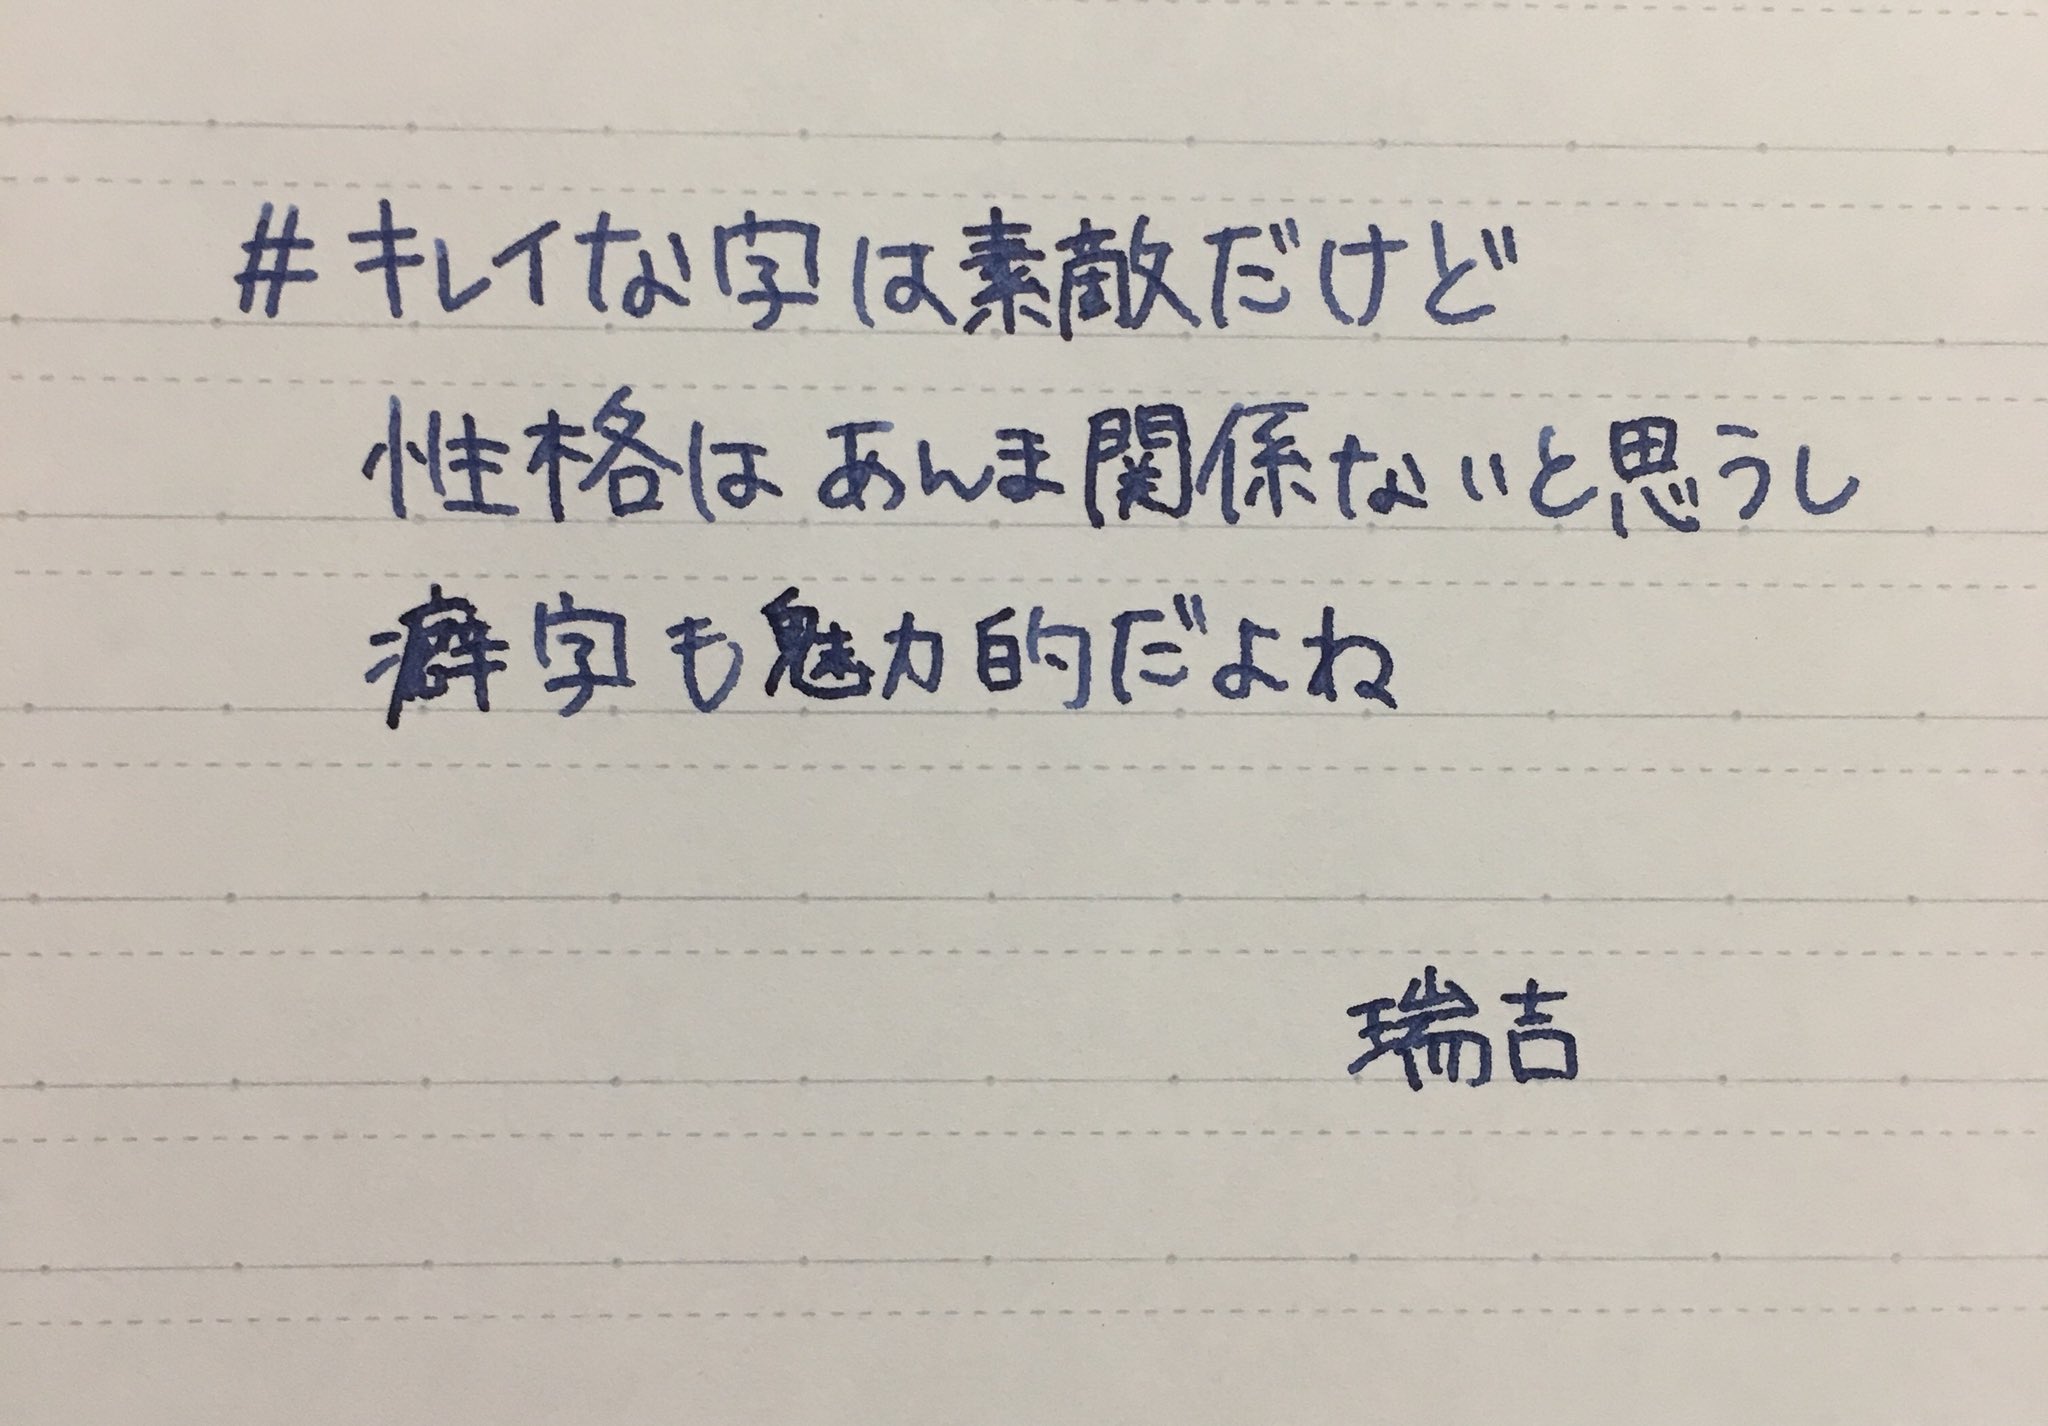 #キレイな字は素敵だけど
性格はあんま関係ないと思うし
癖字も魅力的だよね
瑞吉